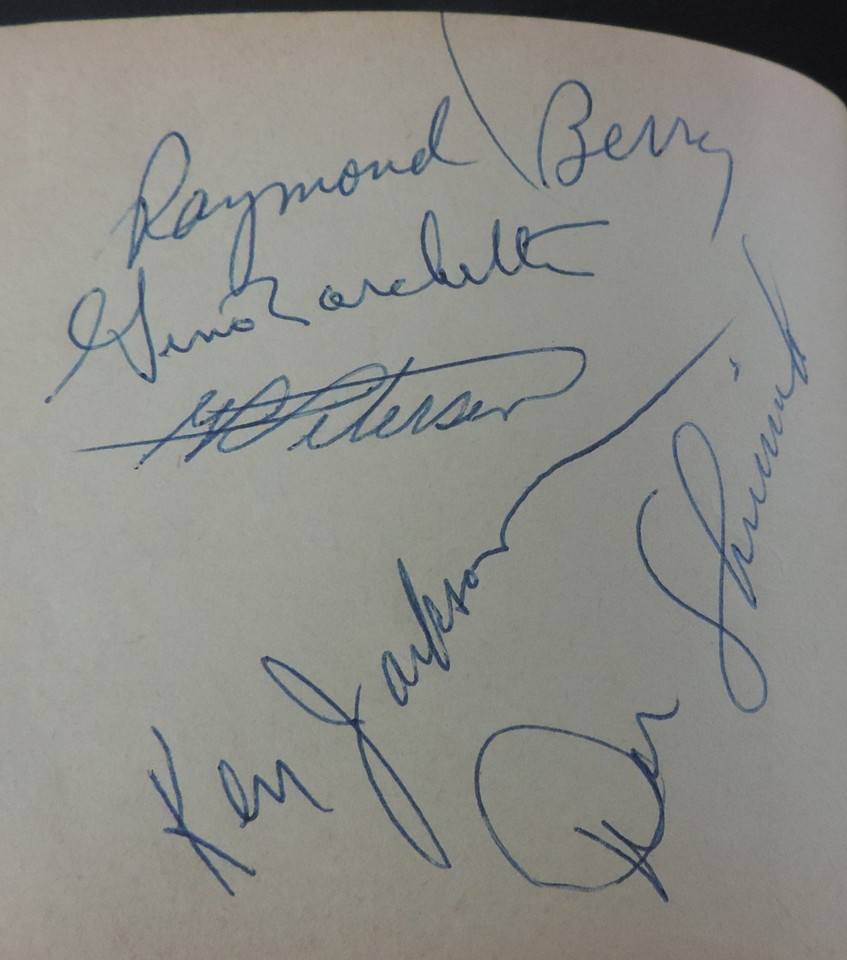 Raymond Berry
Gino Marchetti
Petersen
Ken Jackson
Don Shinnick